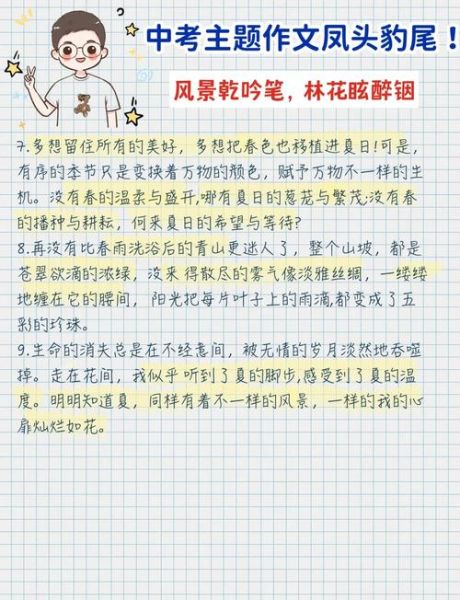 中考主题作文凤头豹尾！
风景乾吟笔，林花眩醉铟
7.多想留住所有的美好，多想把春色也移植进夏日!可是，
有序的季节只是变换着万物的颜色，赋予万物不一样的生
机。没有春的温柔与盛开,哪有夏日的葱茏与繁茂;没有春
的播种与耕耘，何来夏日的希望与等待?
8.再没有比春雨洗浴后的青山更迷人了，整个山坡，都是
苍翠欲滴的浓绿，没来得散尽的雾气像淡雅丝绸，一缕缕
地缠在它的腰间，阳光把每片叶子上的雨滴,都变成了五
彩的珍珠。
9.生命的消失总是在不经意间，被无情的岁月淡然地吞噬
掉。走在花间，我似乎听到了夏的脚步,感受到了夏的温
度。明明知道夏，同样有着不一样的风景，一样的我的心
扉灿烂如花。